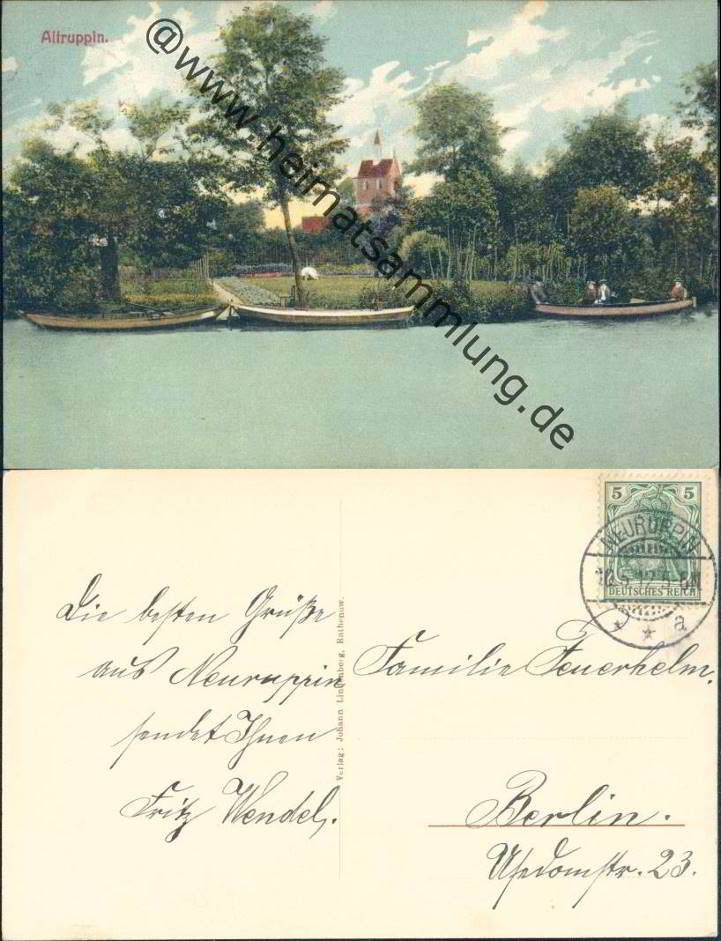 Altruppin.
@www.heimatsammlung.de
5 5
NEURUPPIN
12.5-6N
DEUTSCHES REICH
* * a
Die besten Grüße
aus Neuruppin
sendet Ihnen
Fritz Wendel.
Verlag: Johann Lindenberg, Rathenow.
Familie Feuerhelm.
Berlin.
Usedomstr. 23.